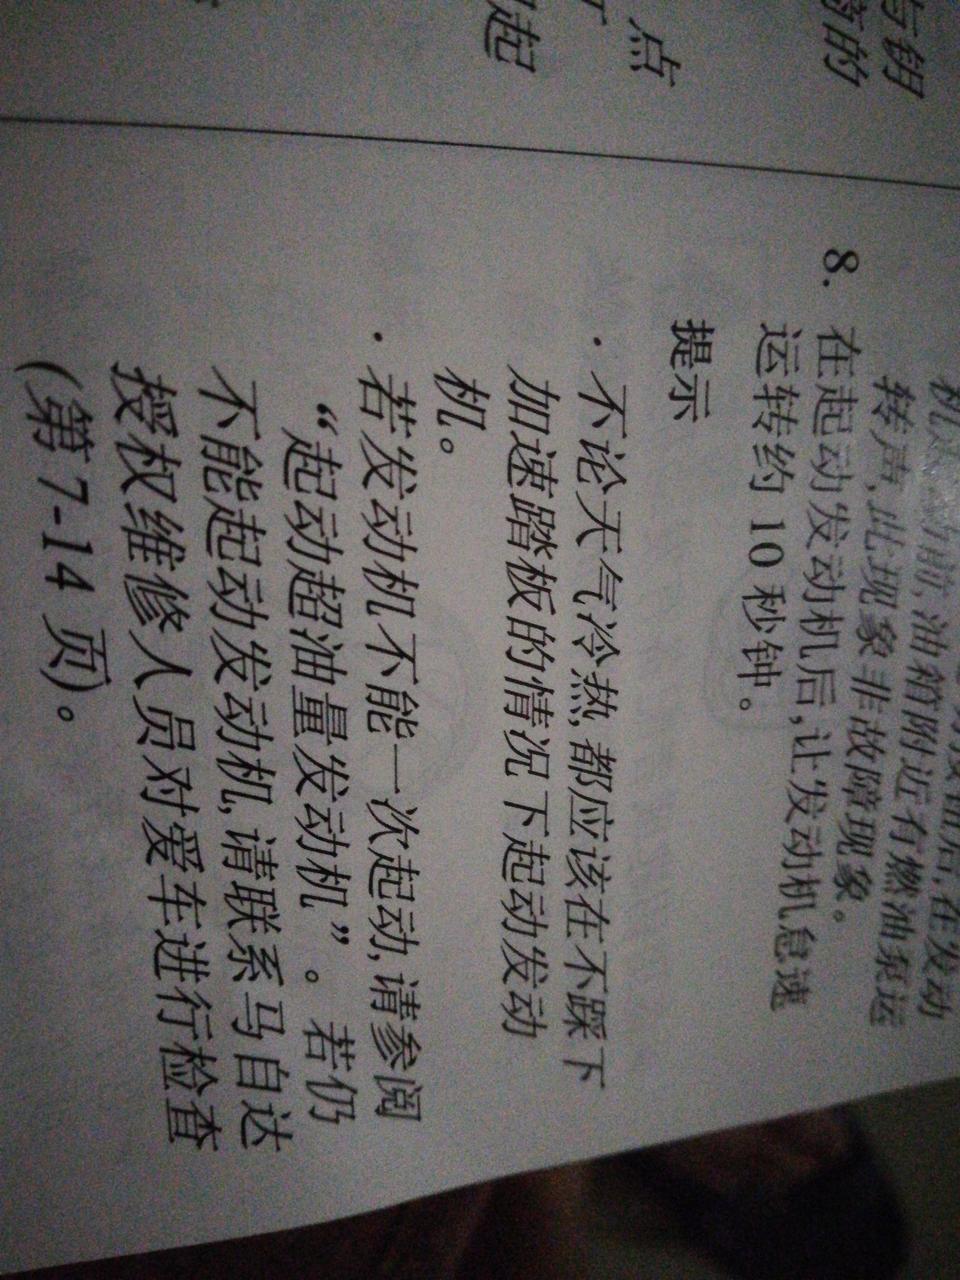 与钥
的
点
起
转声，此现象非故障现象。
8. 在起动发动机后，让发动机怠速
运转约 10 秒钟。
提示
· 不论天气冷热，都应该在不踩下
加速踏板的情况下起动发动
机。
· 若发动机不能一次起动，请参阅
“起动超油量发动机”。若仍
不能起动发动机，请联系马自达
授权维修人员对爱车进行检查
(第 7-14 页)。